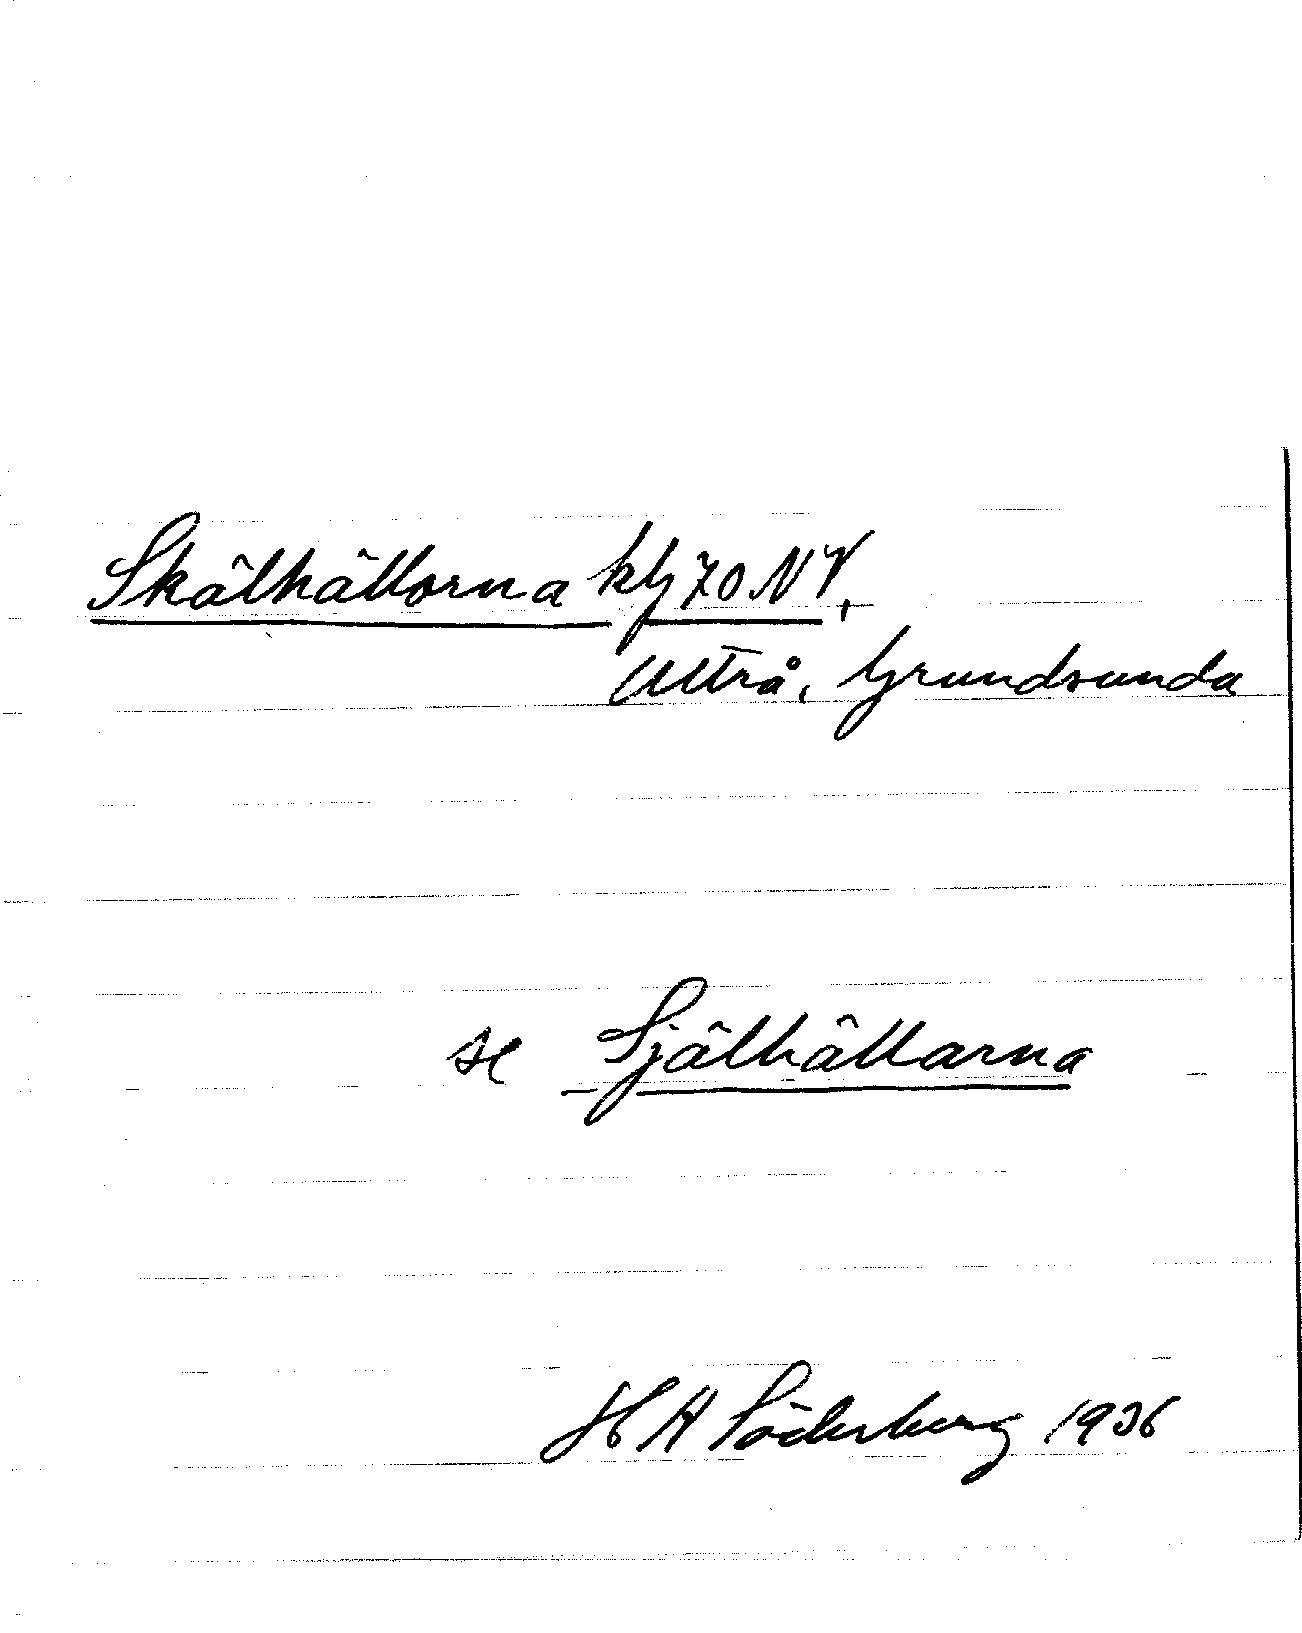 Skälhällorna kbl 70 NV,
Ultrå, Grundsunda
se Själhällarna
H A Söderberg 1936